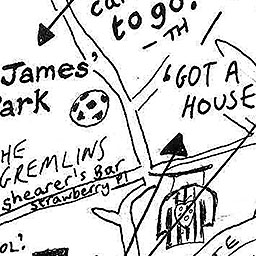 to go!
- TH
James'
Park
'GOT A
HOUSE
THE
GREMLINS
Shearer's Bar
Strawberry Pl